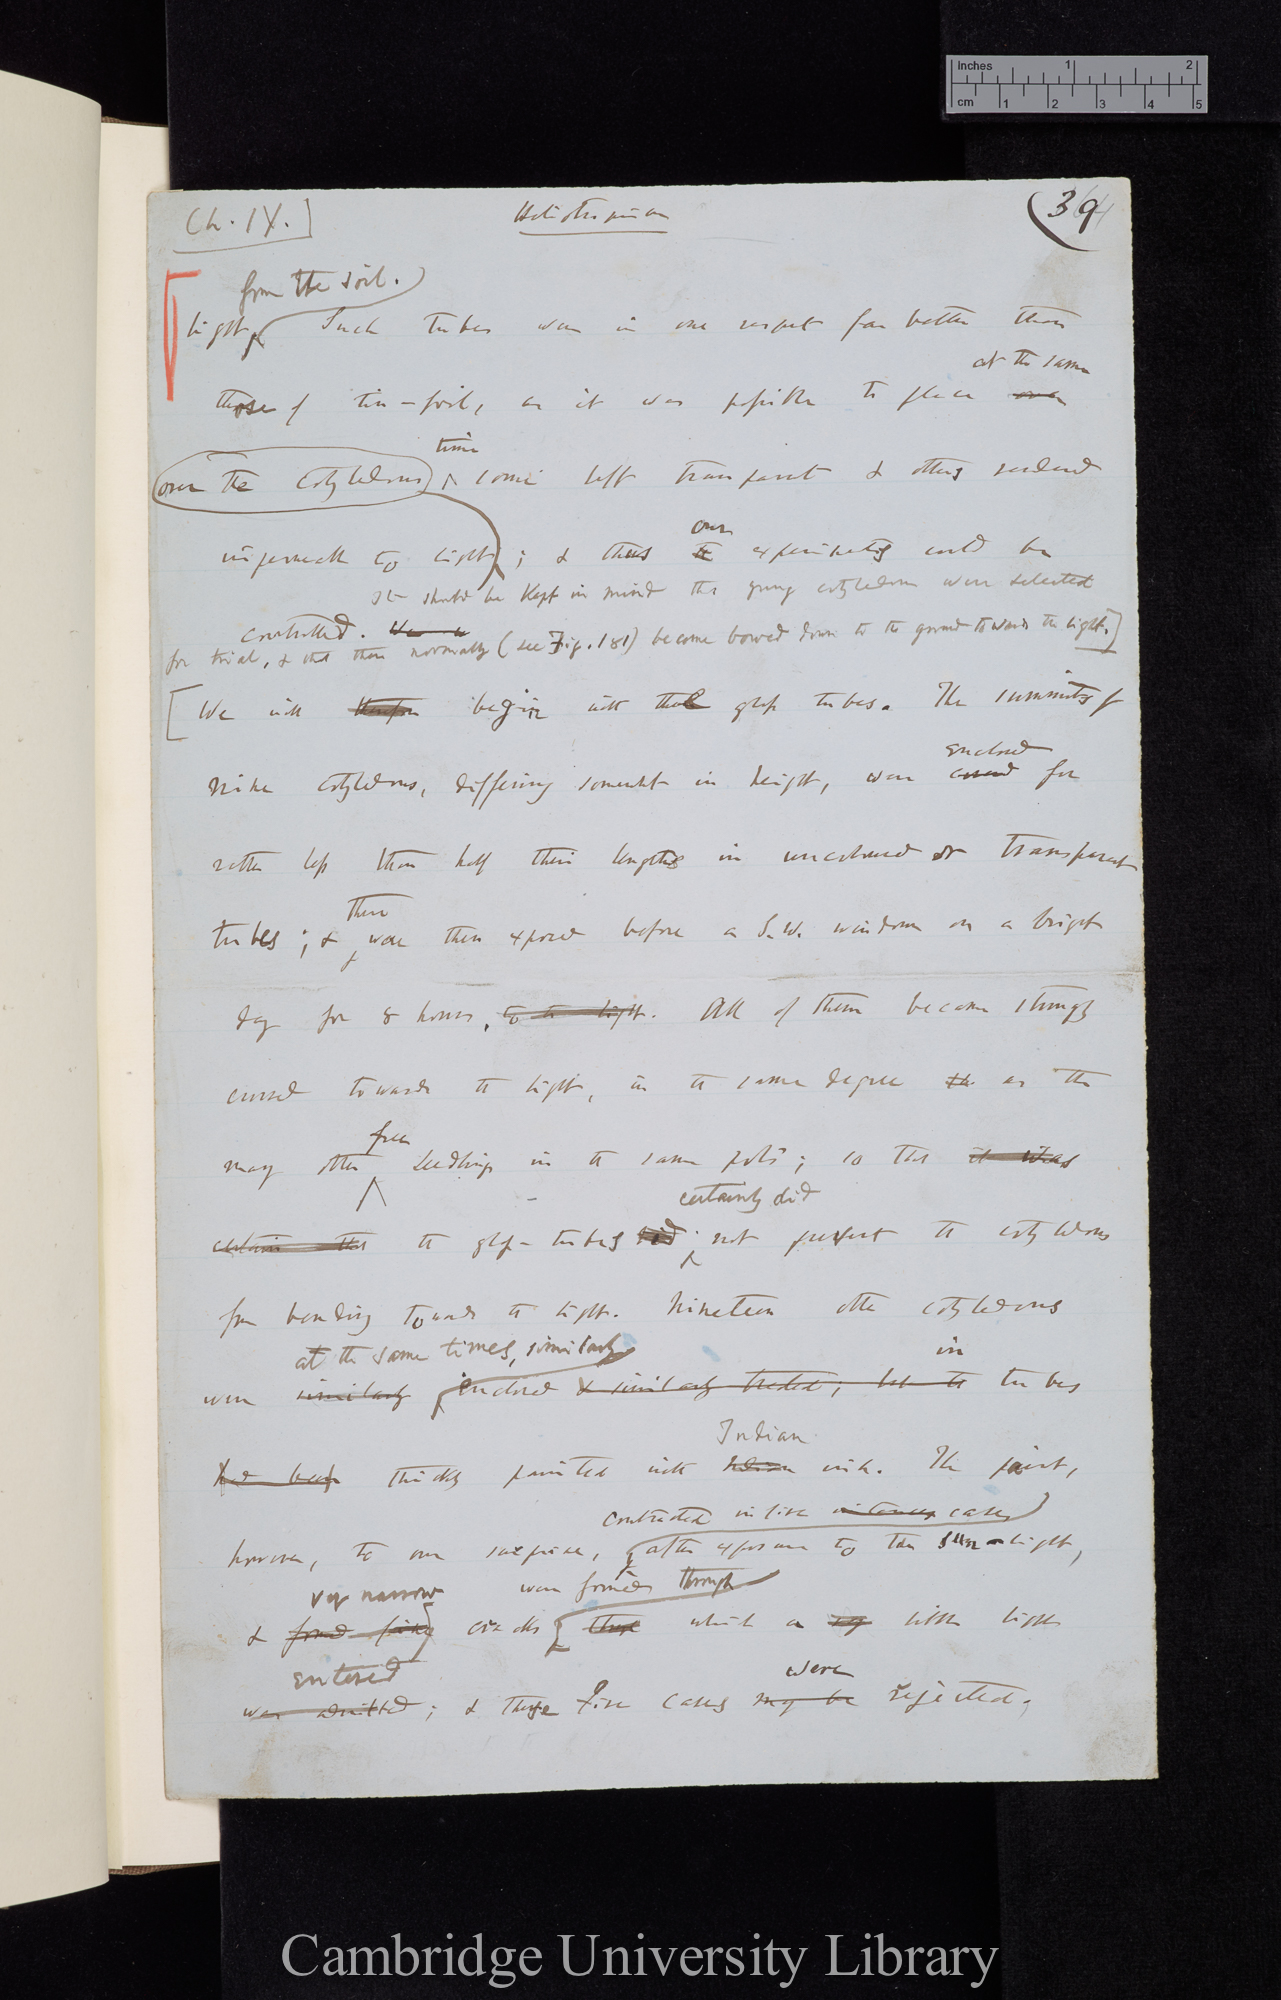 Inches 1 2
cm 1 2 3 4 5
Ch. IX.]
Heliotropism
(39
from the soil.)
light, Such tubes were in one respect far better than
those of tin-foil, as it was possible to place
at the same
over the cotyledons time some left transparent & others rendered
impermeable to light; & thus our experiments could be
controlled.
It should be kept in mind that young cotyledons were selected
for trial, & that these normally (see Fig. 181) become bowed down to the ground towards the light.]
[We will therefore begin with the glass tubes. The summits of
nine cotyledons, differing somewhat in height, were covered enclosed for
rather less than half their lengths in uncoloured or transparent
tubes; & these were then exposed before a S.W. window on a bright
day for 8 hours, to the light. All of them became strongly
curved towards the light, in the same degree as the
many other free seedlings in the same pots; so that it was
certain that the glass-tubes did certainly did not prevent the cotyledons
from bending towards the light. Nineteen other cotyledons
at the same times, similarly
were similarly enclosed & similarly treated; but the in tubes
had been thickly painted with Indian ink. The paint,
Indian
contracted in five instances cases
however, to our surprise, after exposure to the sun-light,
very narrow were formed through
& formed fine cracks these which a little light
entered were
was admitted; & these five cases may be rejected,
Cambridge University Library